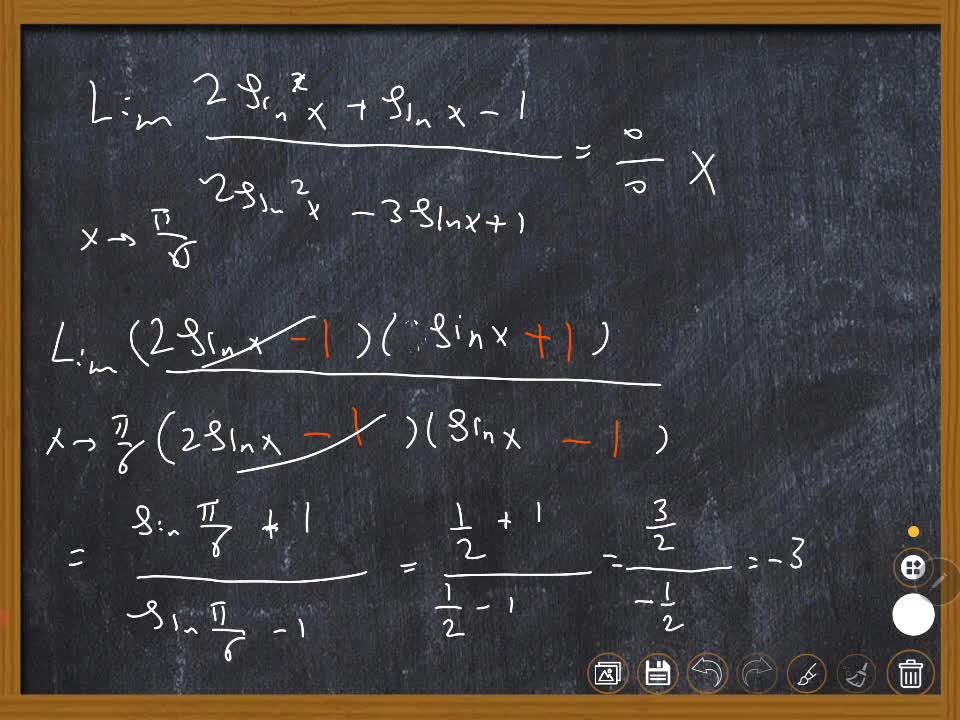 Lim 2 Sin²x + Sin x - 1 / 2 Sin²x - 3 Sin x + 1 = 0/0 X
x → π/6
Lim (2 Sin x - 1)(Sin x + 1)
x → π/6 (2 Sin x - 1)(Sin x - 1)
= Sin π/6 + 1 / Sin π/6 - 1 = 1/2 + 1 / 1/2 - 1 = 3/2 / -1/2 = -3